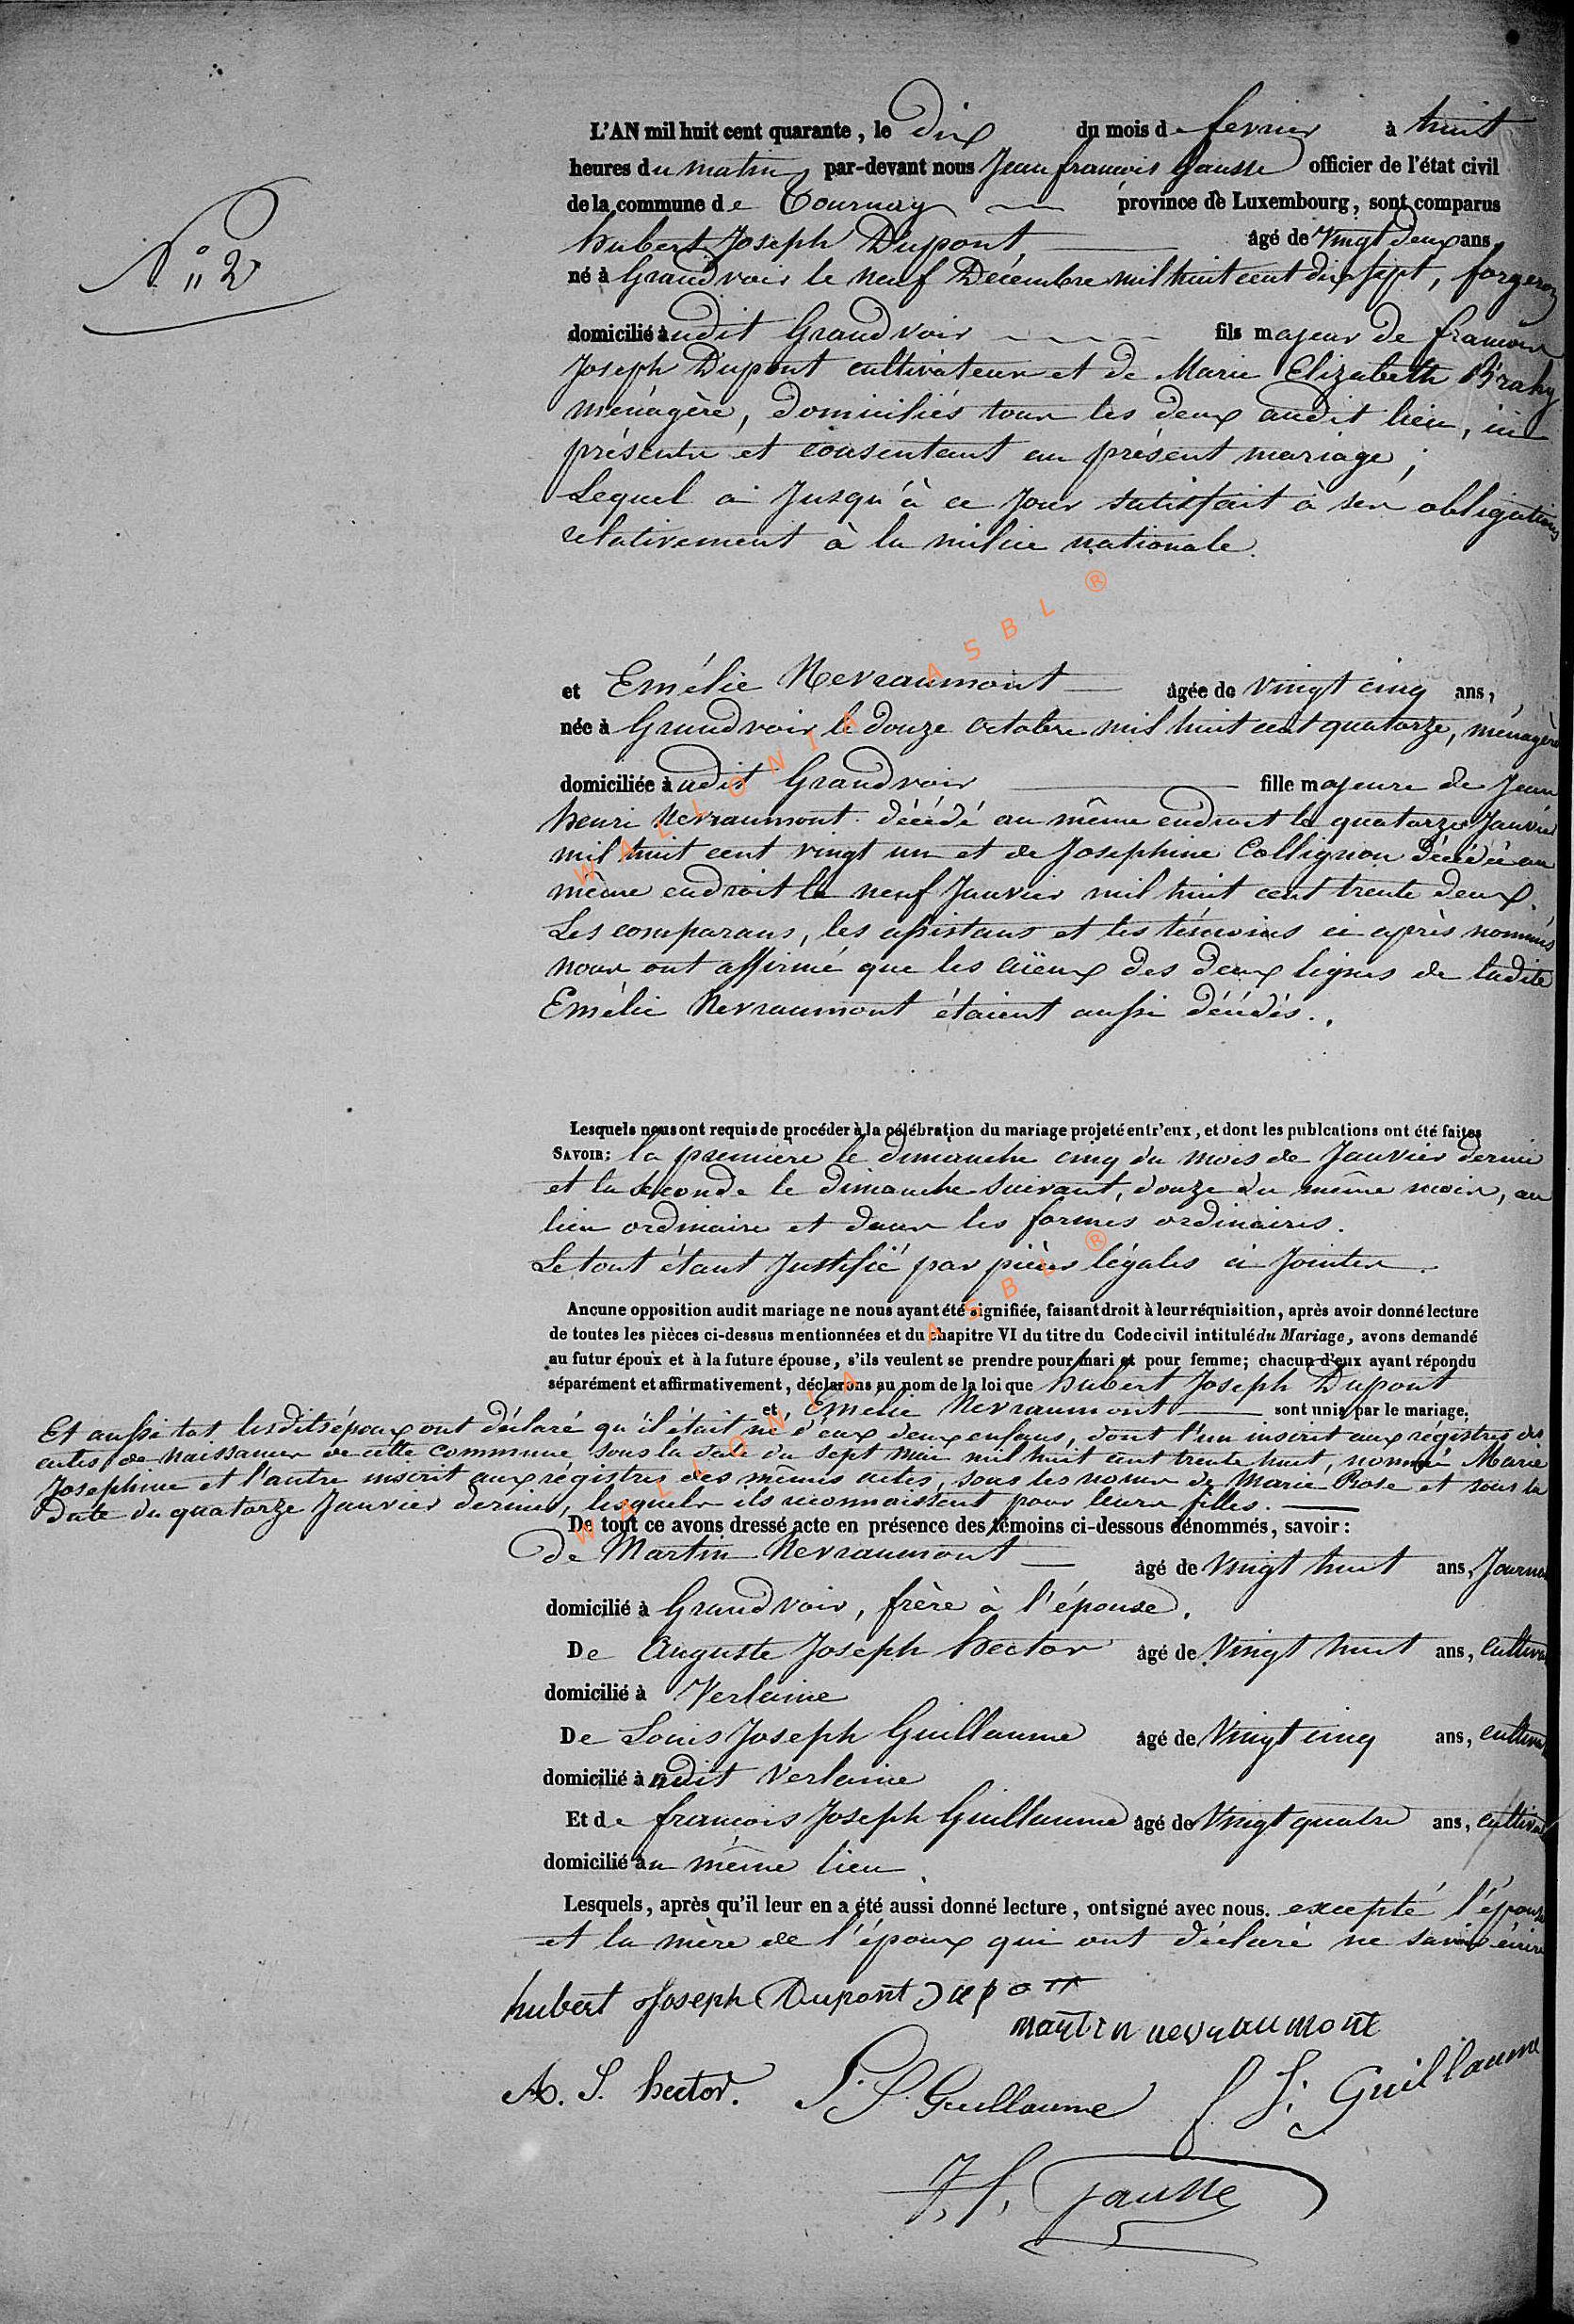 N.° 2
L'AN mil huit cent quarante, le dix du mois de fevrier à huit
heures du matin par-devant nous Jean françois Gausse officier de l'état civil
de la commune de Tournay province de Luxembourg, sont comparus
hubert Joseph Dupont âgé de vingt deux ans,
né à Grandvoir le neuf Décembre mil huit cent dix sept, forgeron
domicilié audit Grandvoir fils majeur de françois
Joseph Dupont cultivateur et de Marie Elizabeth Brahy
ménagère, domiciliés tous les deux audit lieu, ici
présents et consentant au présent mariage;
Lequel a Jusqu'à ce Jour satisfait à ses obligations
relativement à la milice nationale.
et Emélie Nevraumont âgée de vingt cinq ans,
née à Grandvoir le douze octobre mil huit cent quatorze, ménagère
domiciliée audit Grandvoir fille majeure de Jean
henri Nevraumont décédé au même endroit le quatorze Janvier
mil huit cent vingt un et de Josephine Collignon décédée au
même endroit le neuf Janvier mil huit cent trente deux.
Les comparans, les assistans et les témoins ci après nommés
nous ont affirmé que les aïeux des deux lignes de ladite
Emélie Nevraumont étaient aussi décédés.
Lesquels nous ont requis de procéder à la célébration du mariage projeté entr'eux, et dont les publcations ont été faites
SAVOIR: la première le dimanche cinq du mois de Janvier dernier
et la seconde le dimanche suivant, douze du même mois, au
lieu ordinaire et dans les formes ordinaires.
Le tout étant Justifié par pièces légales ci Jointes.
Ancune opposition audit mariage ne nous ayant été signifiée, faisant droit à leur réquisition, après avoir donné lecture
de toutes les pièces ci-dessus mentionnées et du chapitre VI du titre du Code civil intitulé du Mariage, avons demandé
au futur époux et à la future épouse, s'ils veulent se prendre pour mari et pour femme; chacun d'eux ayant répondu
séparément et affirmativement, déclarons au nom de la loi que hubert Joseph Dupont
et Emélie Nevraumont sont unis par le mariage.
Et aussitot lesdits époux ont déclaré qu'il était né d'eux deux enfans, dont l'un inscrit aux régistres des
actes de naissances de cette commune sous la date du sept mai mil huit cent trente huit, nommé Marie
Josephine et l'autre inscrit aux régistres des mêmes actes, sous les noms de Marie Rose et sous la
date du quatorze Janvier dernier, lesquels ils reconnaissent pour leurs filles.
De tout ce avons dressé acte en présence des témoins ci-dessous dénommés, savoir:
de Martin Nevraumont âgé de vingt huit ans, Journ
domicilié à Grandvoir, frère à l'épouse.
De Auguste Joseph hector âgé de vingt huit ans, cultiva
domicilié à Verlaine
De Louis Joseph Guillaume âgé de vingt cinq ans, cultiva
domicilié audit Verlaine
Et de francois Joseph Guillaume âgé de vingt quatre ans, cultiva
domicilié au même lieu
Lesquels, après qu'il leur en a été aussi donné lecture, ont signé avec nous. excepté l'épouse
et la mère de l'époux qui ont déclaré ne savoir écrire
hubert Joseph Dupont Dupont
martin nevraumont
A. J. hector. L. J. Guillaume f J; Guillaume
J. f. Gausse
WALLONIA ASBL ®
WALLONIA ASBL ®